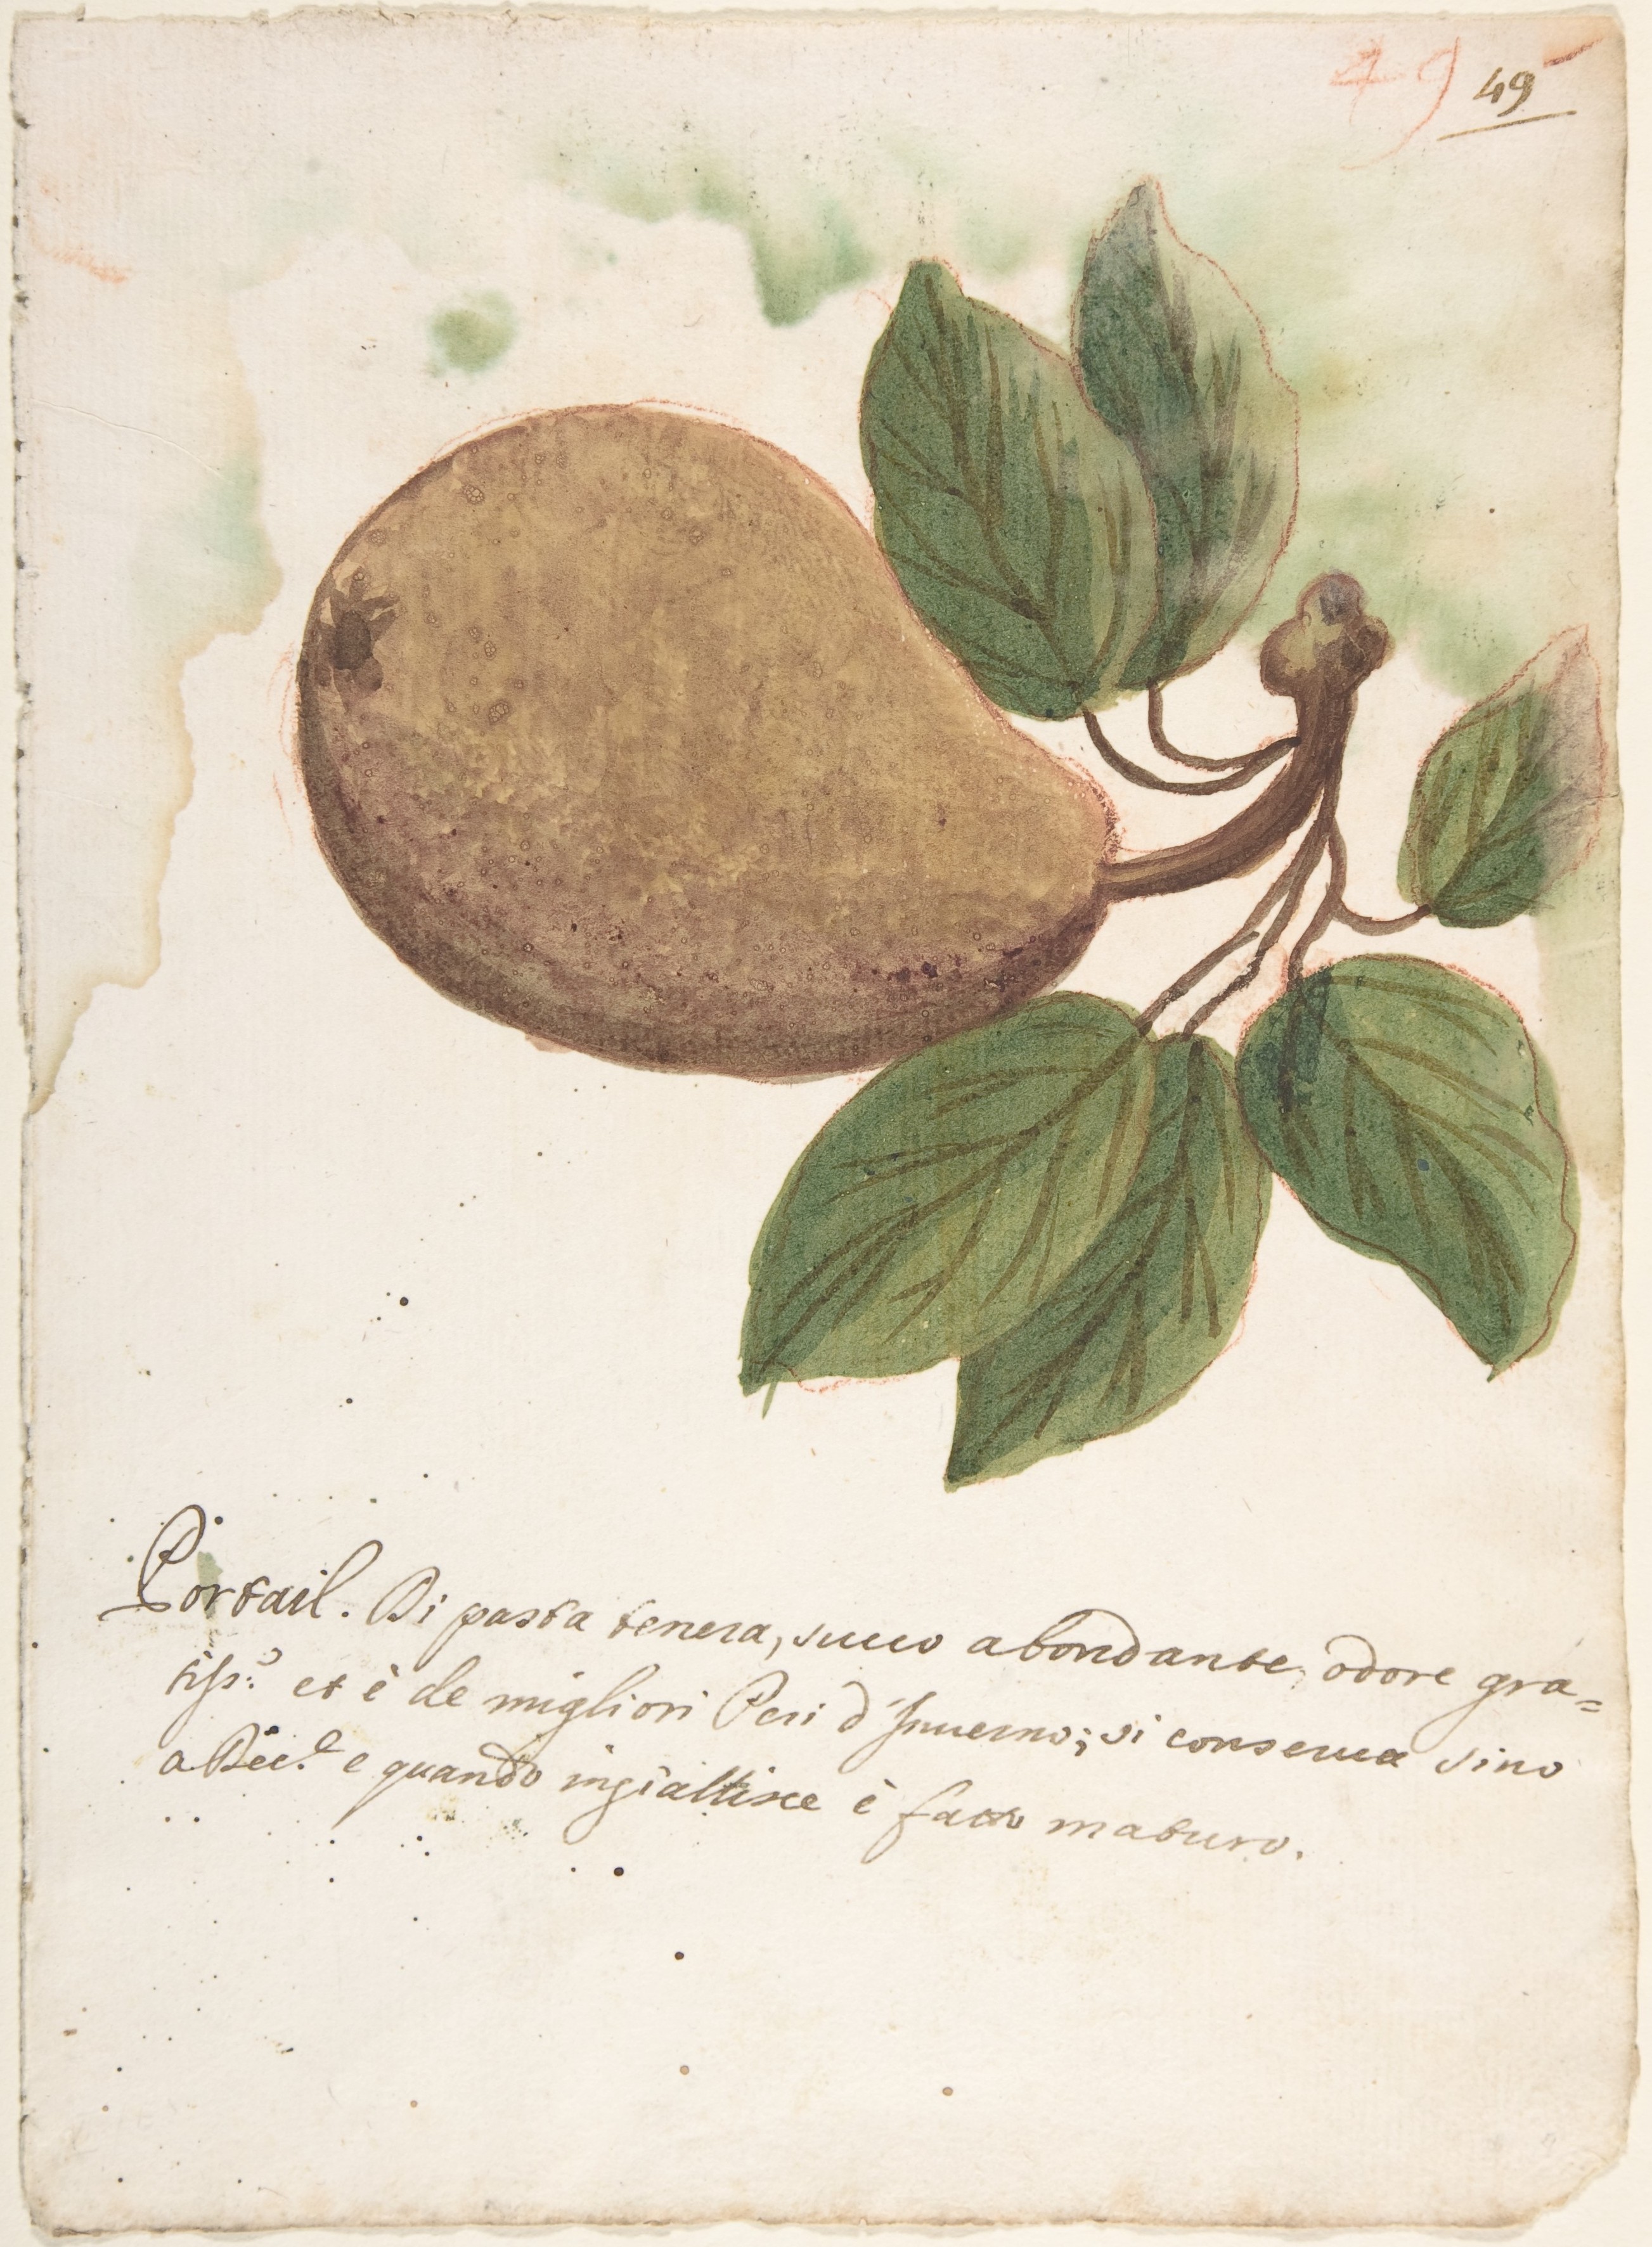 49 49
Portail. Di pasta tenera, succo abondante, odore gra=
tiss.º et è de migliori Peri d'Inuerno; si conserua sino
a Dec.e e quando ingialtisce è fatto maturo.